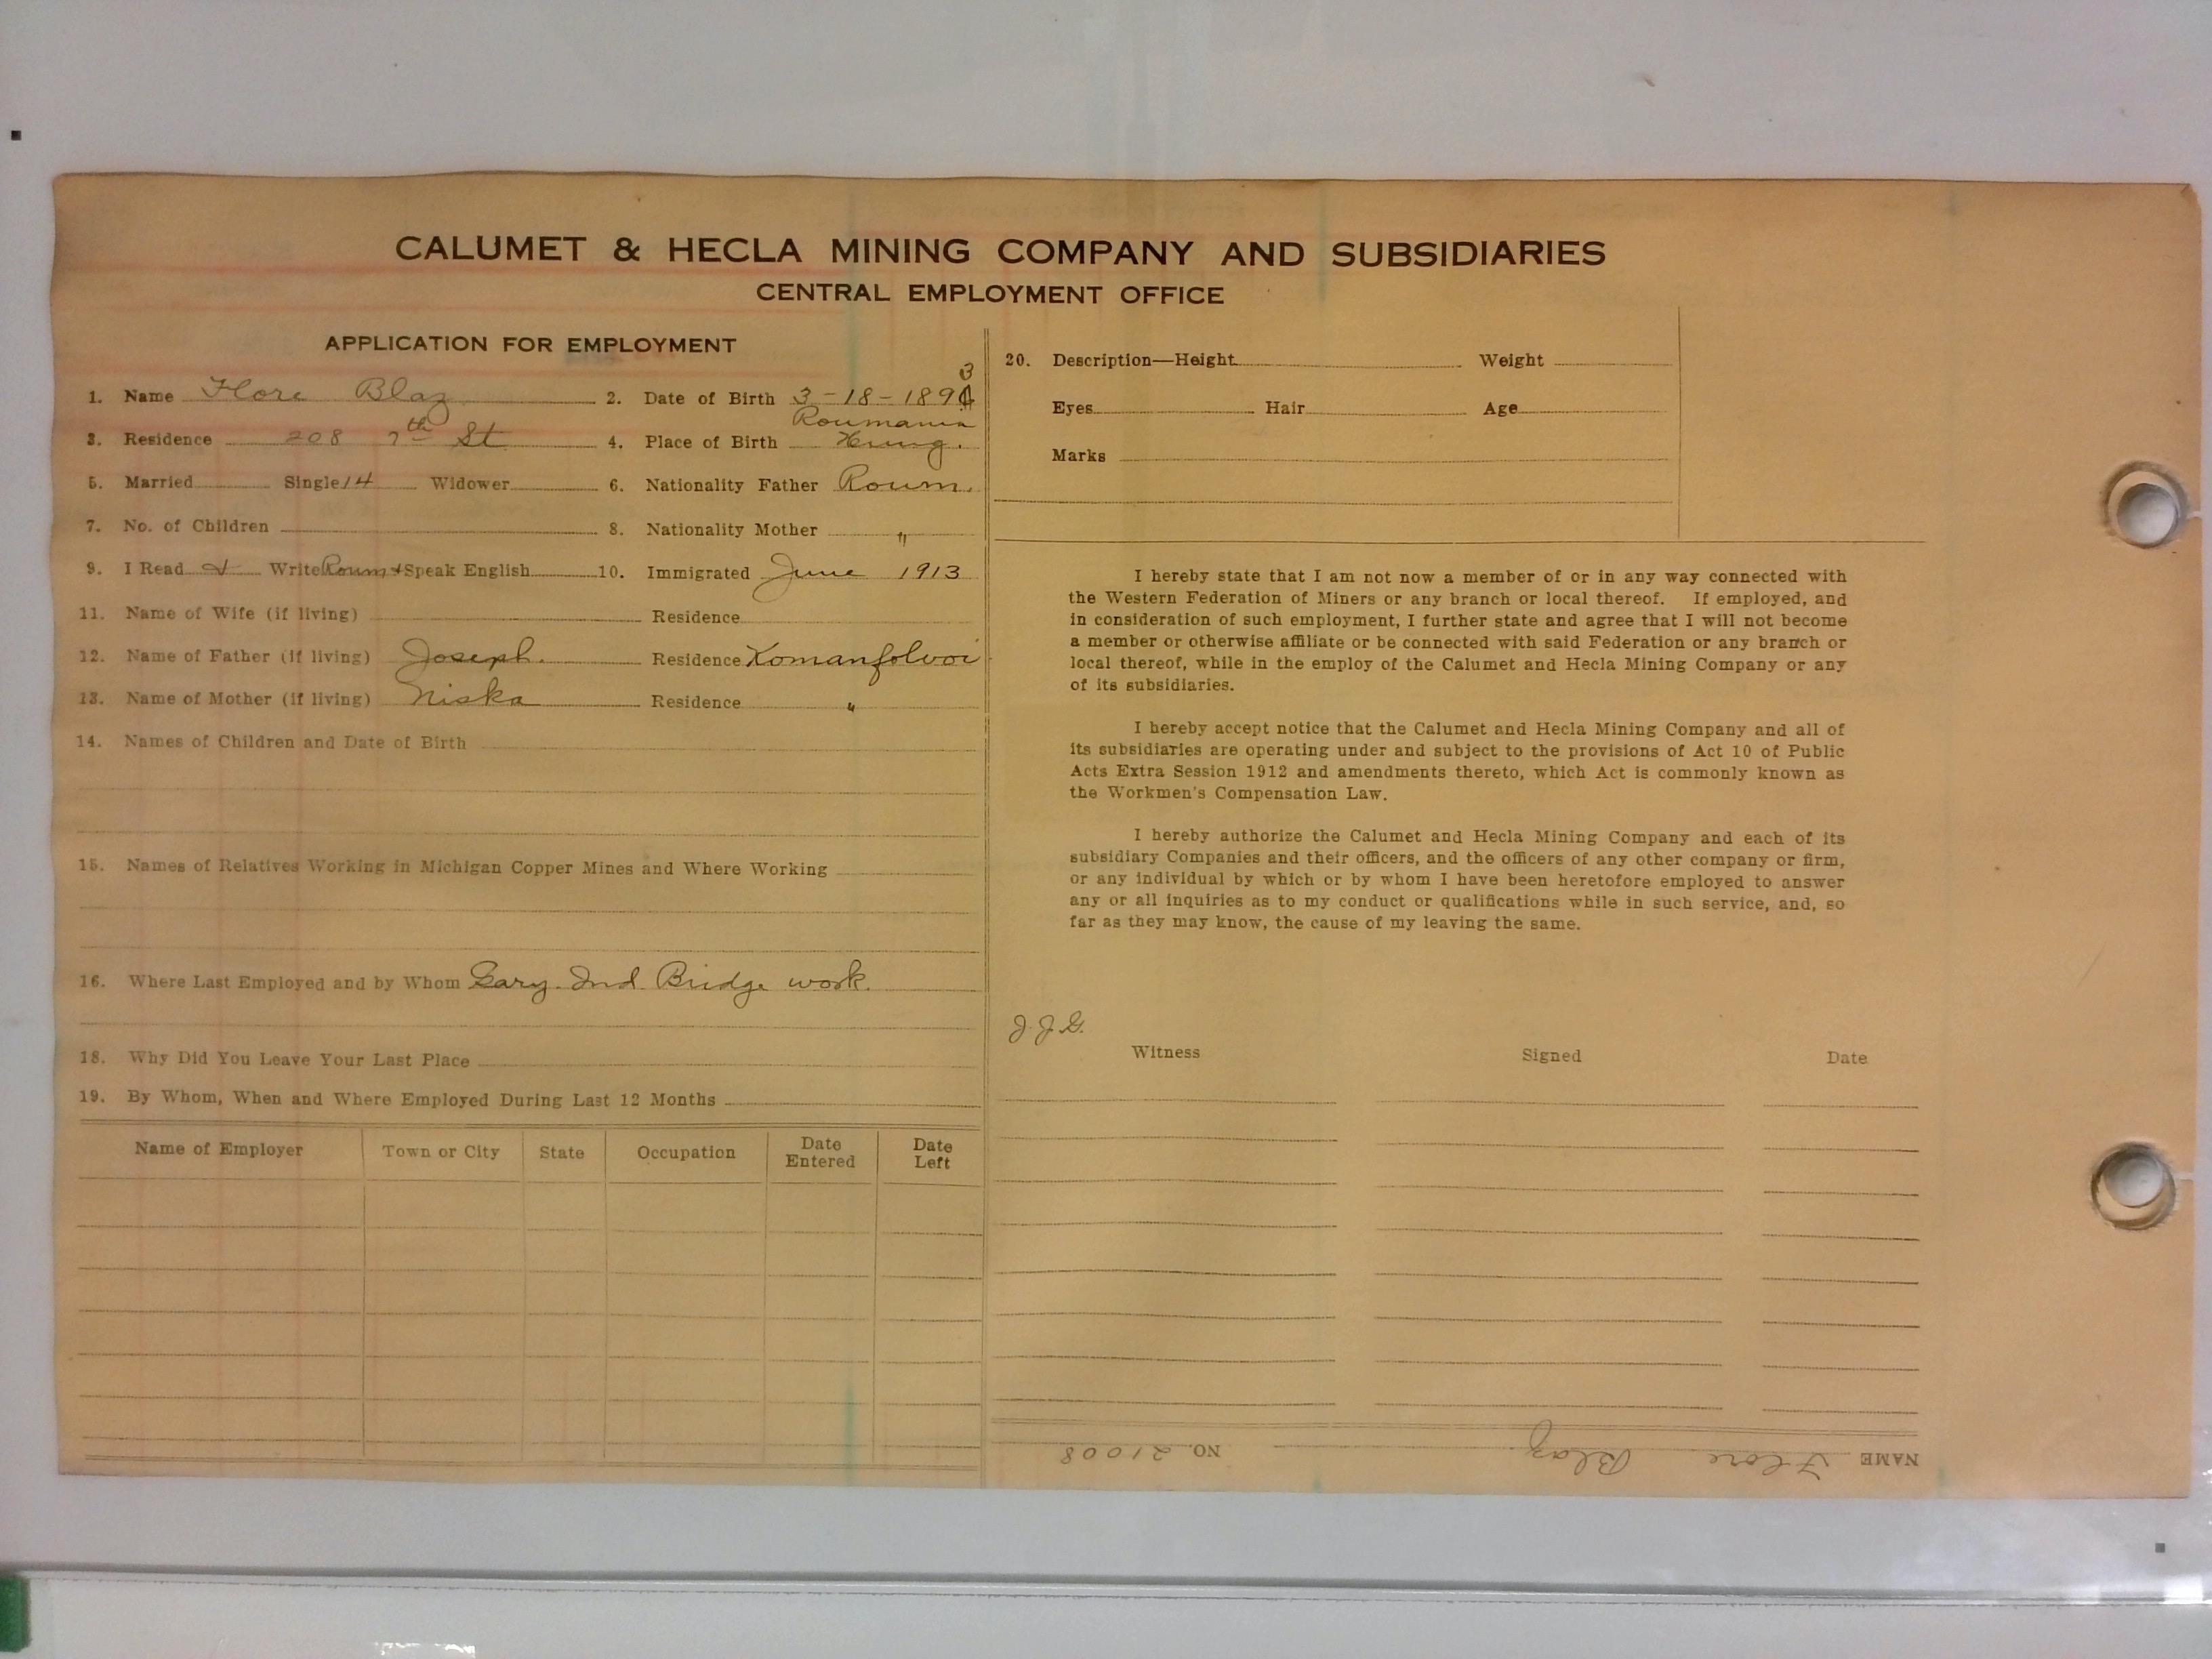 CALUMET & HECLA MINING COMPANY AND SUBSIDIARIES
CENTRAL EMPLOYMENT OFFICE
APPLICATION FOR EMPLOYMENT
1. Name Flore Blaz 2. Date of Birth 3-18-1894 3
3. Residence 208 7th St 4. Place of Birth Roumania Hung.
5. Married Single 14 Widower 6. Nationality Father Roum.
7. No. of Children 8. Nationality Mother "
9. I Read & Write Roum & Speak English 10. Immigrated June 1913
11. Name of Wife (if living) Residence
12. Name of Father (if living) Joseph. Residence
13. Name of Mother (if living) Niska Residence "
14. Names of Children and Date of Birth
15. Names of Relatives Working in Michigan Copper Mines and Where Working
16. Where Last Employed and by Whom Gary. Ind. Bridge work.
18. Why Did You Leave Your Last Place
19. By Whom, When and Where Employed During Last 12 Months
Name of Employer Town or City State Occupation Date Entered Date Left
20. Description—Height Weight
Eyes Hair Age
Marks
I hereby state that I am not now a member of or in any way connected with
the Western Federation of Miners or any branch or local thereof. If employed, and
in consideration of such employment, I further state and agree that I will not become
a member or otherwise affiliate or be connected with said Federation or any branch or
local thereof, while in the employ of the Calumet and Hecla Mining Company or any
of its subsidiaries.
I hereby accept notice that the Calumet and Hecla Mining Company and all of
its subsidiaries are operating under and subject to the provisions of Act 10 of Public
Acts Extra Session 1912 and amendments thereto, which Act is commonly known as
the Workmen's Compensation Law.
I hereby authorize the Calumet and Hecla Mining Company and each of its
subsidiary Companies and their officers, and the officers of any other company or firm,
or any individual by which or by whom I have been heretofore employed to answer
any or all inquiries as to my conduct or qualifications while in such service, and, so
far as they may know, the cause of my leaving the same.
J.J.G.
Witness Signed Date
NAME Flore Blaz NO. 21008